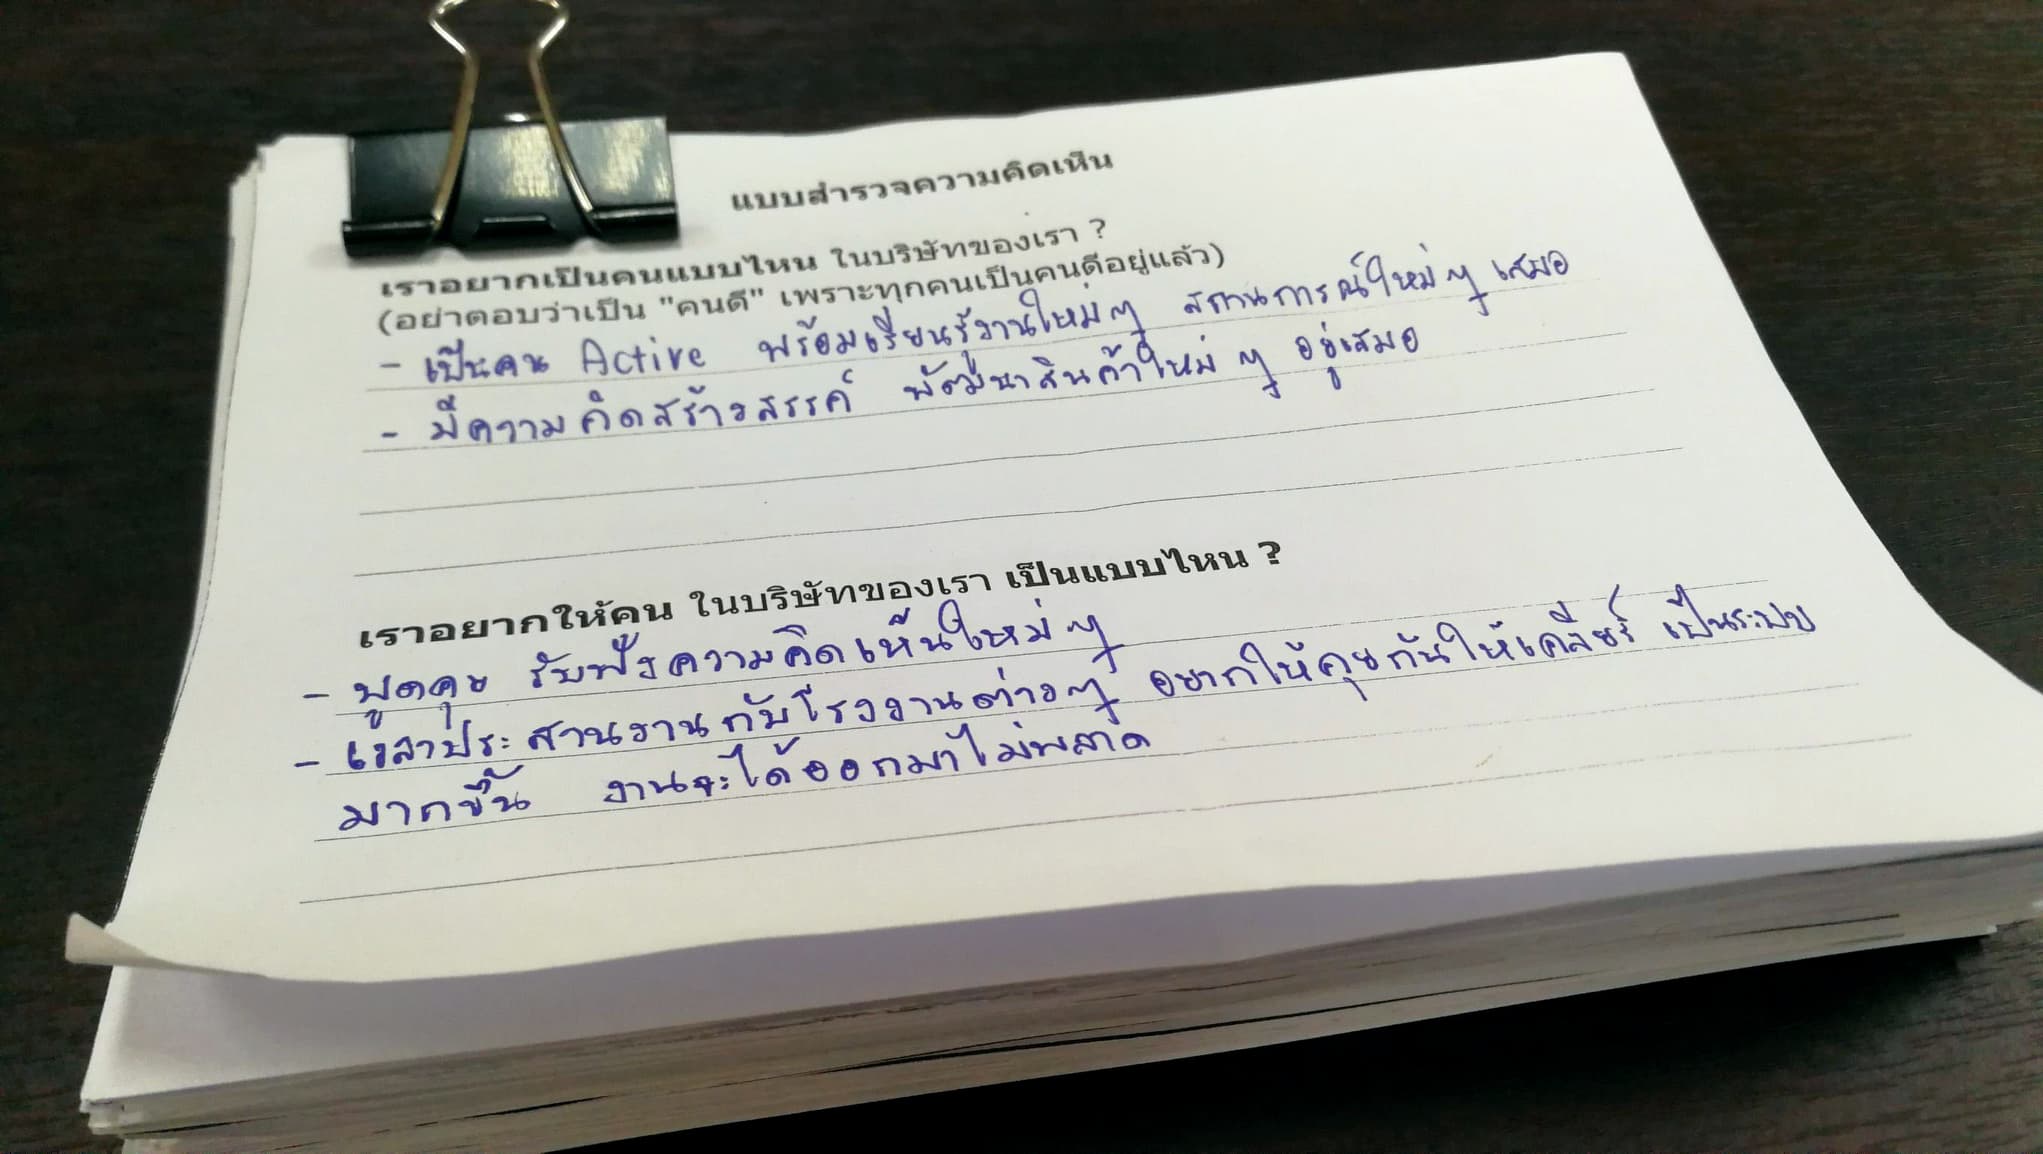 แบบสำรวจความคิดเห็น
เราอยากเป็นคนแบบไหน ในบริษัทของเรา ?
(อย่าตอบว่าเป็น "คนดี" เพราะทุกคนเป็นคนดีอยู่แล้ว)
- เป็นคน Active พร้อมเรียนรู้งานใหม่ๆ สถานการณ์ใหม่ๆ เสมอ
- มีความคิดสร้างสรรค์ พัฒนาสินค้าใหม่ๆ อยู่เสมอ
เราอยากให้คน ในบริษัทของเรา เป็นแบบไหน ?
- พูดคุย รับฟังความคิดเห็นใหม่ๆ
- เวลาประสานงานกับโรงงานต่างๆ อยากให้คุยกันให้เคลียร์ เป็นระบบ
มากขึ้น งานจะได้ออกมาไม่พลาด